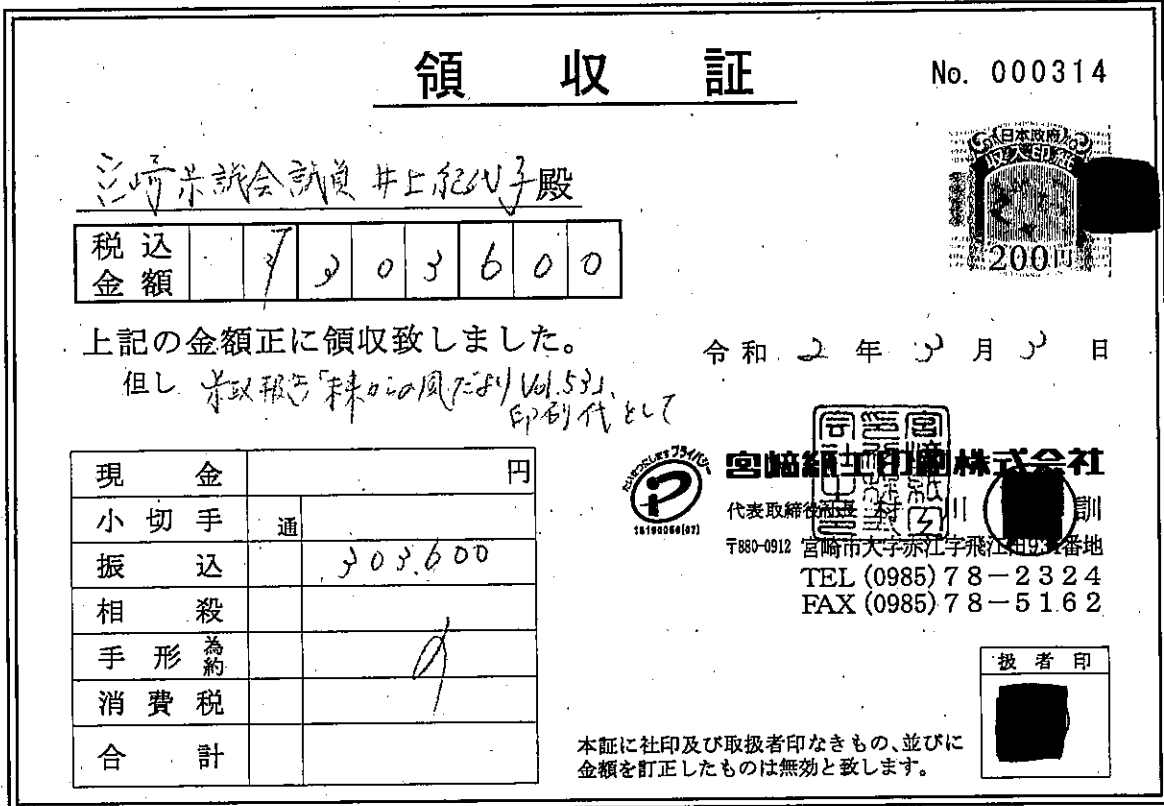 領収証
No. 000314
日本政府
収入印紙
200円
宮崎県議会議員 井上紀代子殿
税込金額 ¥303600
上記の金額正に領収致しました。
令和 2 年 3 月 3 日
但し 県政報告「未来からの風だより Vol.53」
印刷代として
現金 円
小切手 通
振込 303,600
相殺
手形 為約
消費税
合計
たいせつにしますプライバシー
宮崎紙工印刷株式会社
代表取締役社長 村川 訓
〒880-0912 宮崎市大字赤江字飛江田931番地
TEL (0985) 78-2324
FAX (0985) 78-5162
扱者印
本証に社印及び取扱者印なきもの、並びに
金額を訂正したものは無効と致します。